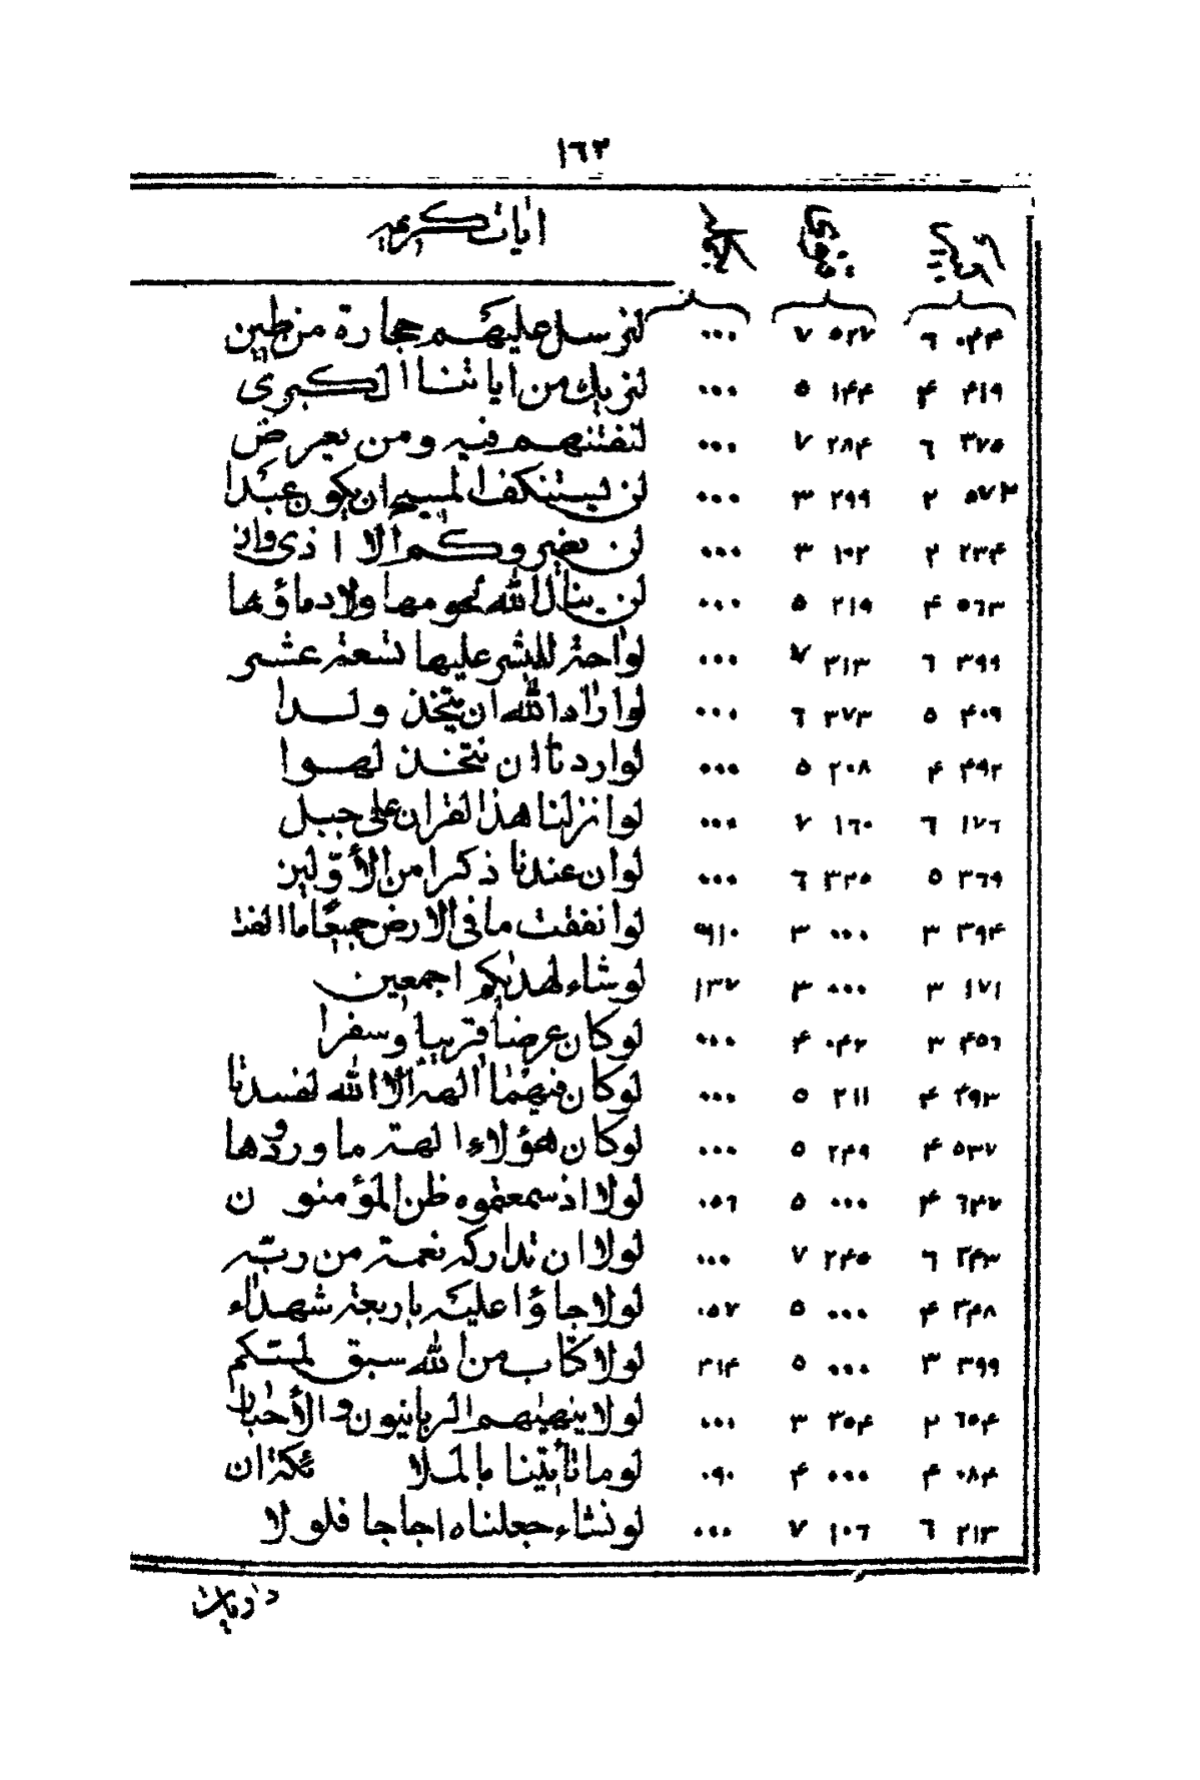 ١٦٣
آيات كريمه
٦ ٠٤٤ ٧ ٥٢٧ ٠٠٠ لنرسل عليهم حجارة من طين
٤ ٤١٩ ٥ ١٤٤ ٠٠٠ لنريك من اياتنا الكبرى
٦ ٣٧٥ ٧ ٢٨٤ ٠٠٠ لنفتنهم فيه ومن يعرض
٢ ٥٧٣ ٣ ٢٩٩ ٠٠٠ لن يستنكف المسيح ان يكون عبدا
٢ ٢٣٤ ٣ ١٠٢ ٠٠٠ لن يضروكم الا اذى وان
٤ ٥٦٣ ٥ ٢١٩ ٠٠٠ لن ينال الله لحومها ولا دماؤها
٦ ٣٩٩ ٧ ٣١٣ ٠٠٠ لواحة للبشر عليها تسعة عشر
٥ ٤٠٩ ٦ ٣٧٣ ٠٠٠ لو اراد الله ان يتخذ ولدا
٤ ٤٩٢ ٥ ٢٠٨ ٠٠٠ لو اردنا ان نتخذ لهوا
٦ ١٧٦ ٧ ١٦٠ ٠٠٠ لو انزلنا هذا القران على جبل
٥ ٣٦٩ ٦ ٣٢٥ ٠٠٠ لو ان عندنا ذكرا من الأوّلين
٣ ٣٩٤ ٣ ٠٠٠ ٩١٠ لو انفقت ما في الارض جميعًا ما الفت
٣ ١٧١ ٣ ٠٠٠ ١٣٧ لو شاء لهديكم اجمعين
٣ ٤٥٦ ٤ ٠٤٢ ٠٠٠ لو كان عرضا قريبا وسفرا
٤ ٤٩٣ ٥ ٢١١ ٠٠٠ لو كان فيهما الهة الا الله لفسدتا
٤ ٥٣٧ ٥ ٢٤٩ ٠٠٠ لو كان هؤلاء الهة ما وردوها
٤ ٦٤٧ ٥ ٠٠٠ ٠٥٦ لولا اذ سمعتموه ظن المؤمنون
٦ ٢٤٣ ٧ ٢٤٥ ٠٠٠ لولا ان تداركه نعمة من ربّه
٤ ٣٤٨ ٥ ٠٠٠ ٠٥٧ لولا جاؤا عليه باربعة شهداء
٣ ٣٩٩ ٥ ٠٠٠ ٢١٤ لولا كتاب من الله سبق لمسّكم
٢ ٦٥٤ ٣ ٣٥٤ ٠٠٠ لولا ينهيهم الربانيون والأحبار
٤ ٠٨٤ ٤ ٠٠٠ ٠٩٠ لو ما تأتينا بالملائكة ان
٦ ٢١٣ ٧ ١٠٦ ٠٠٠ لو نشاء جعلناه اجاجا فلولا